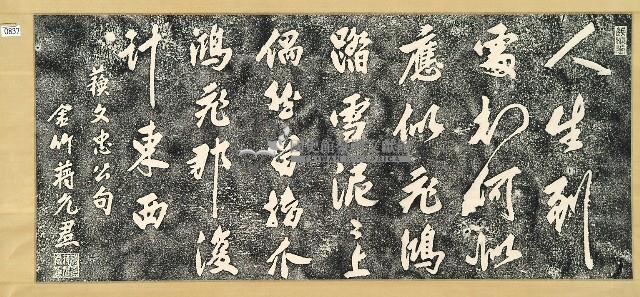 0837
人生到
處知何似
應似飛鴻
踏雪泥〻上
偶然留指爪
鴻飛那復
計東西
蘇文忠公句
金竹蔣允焄